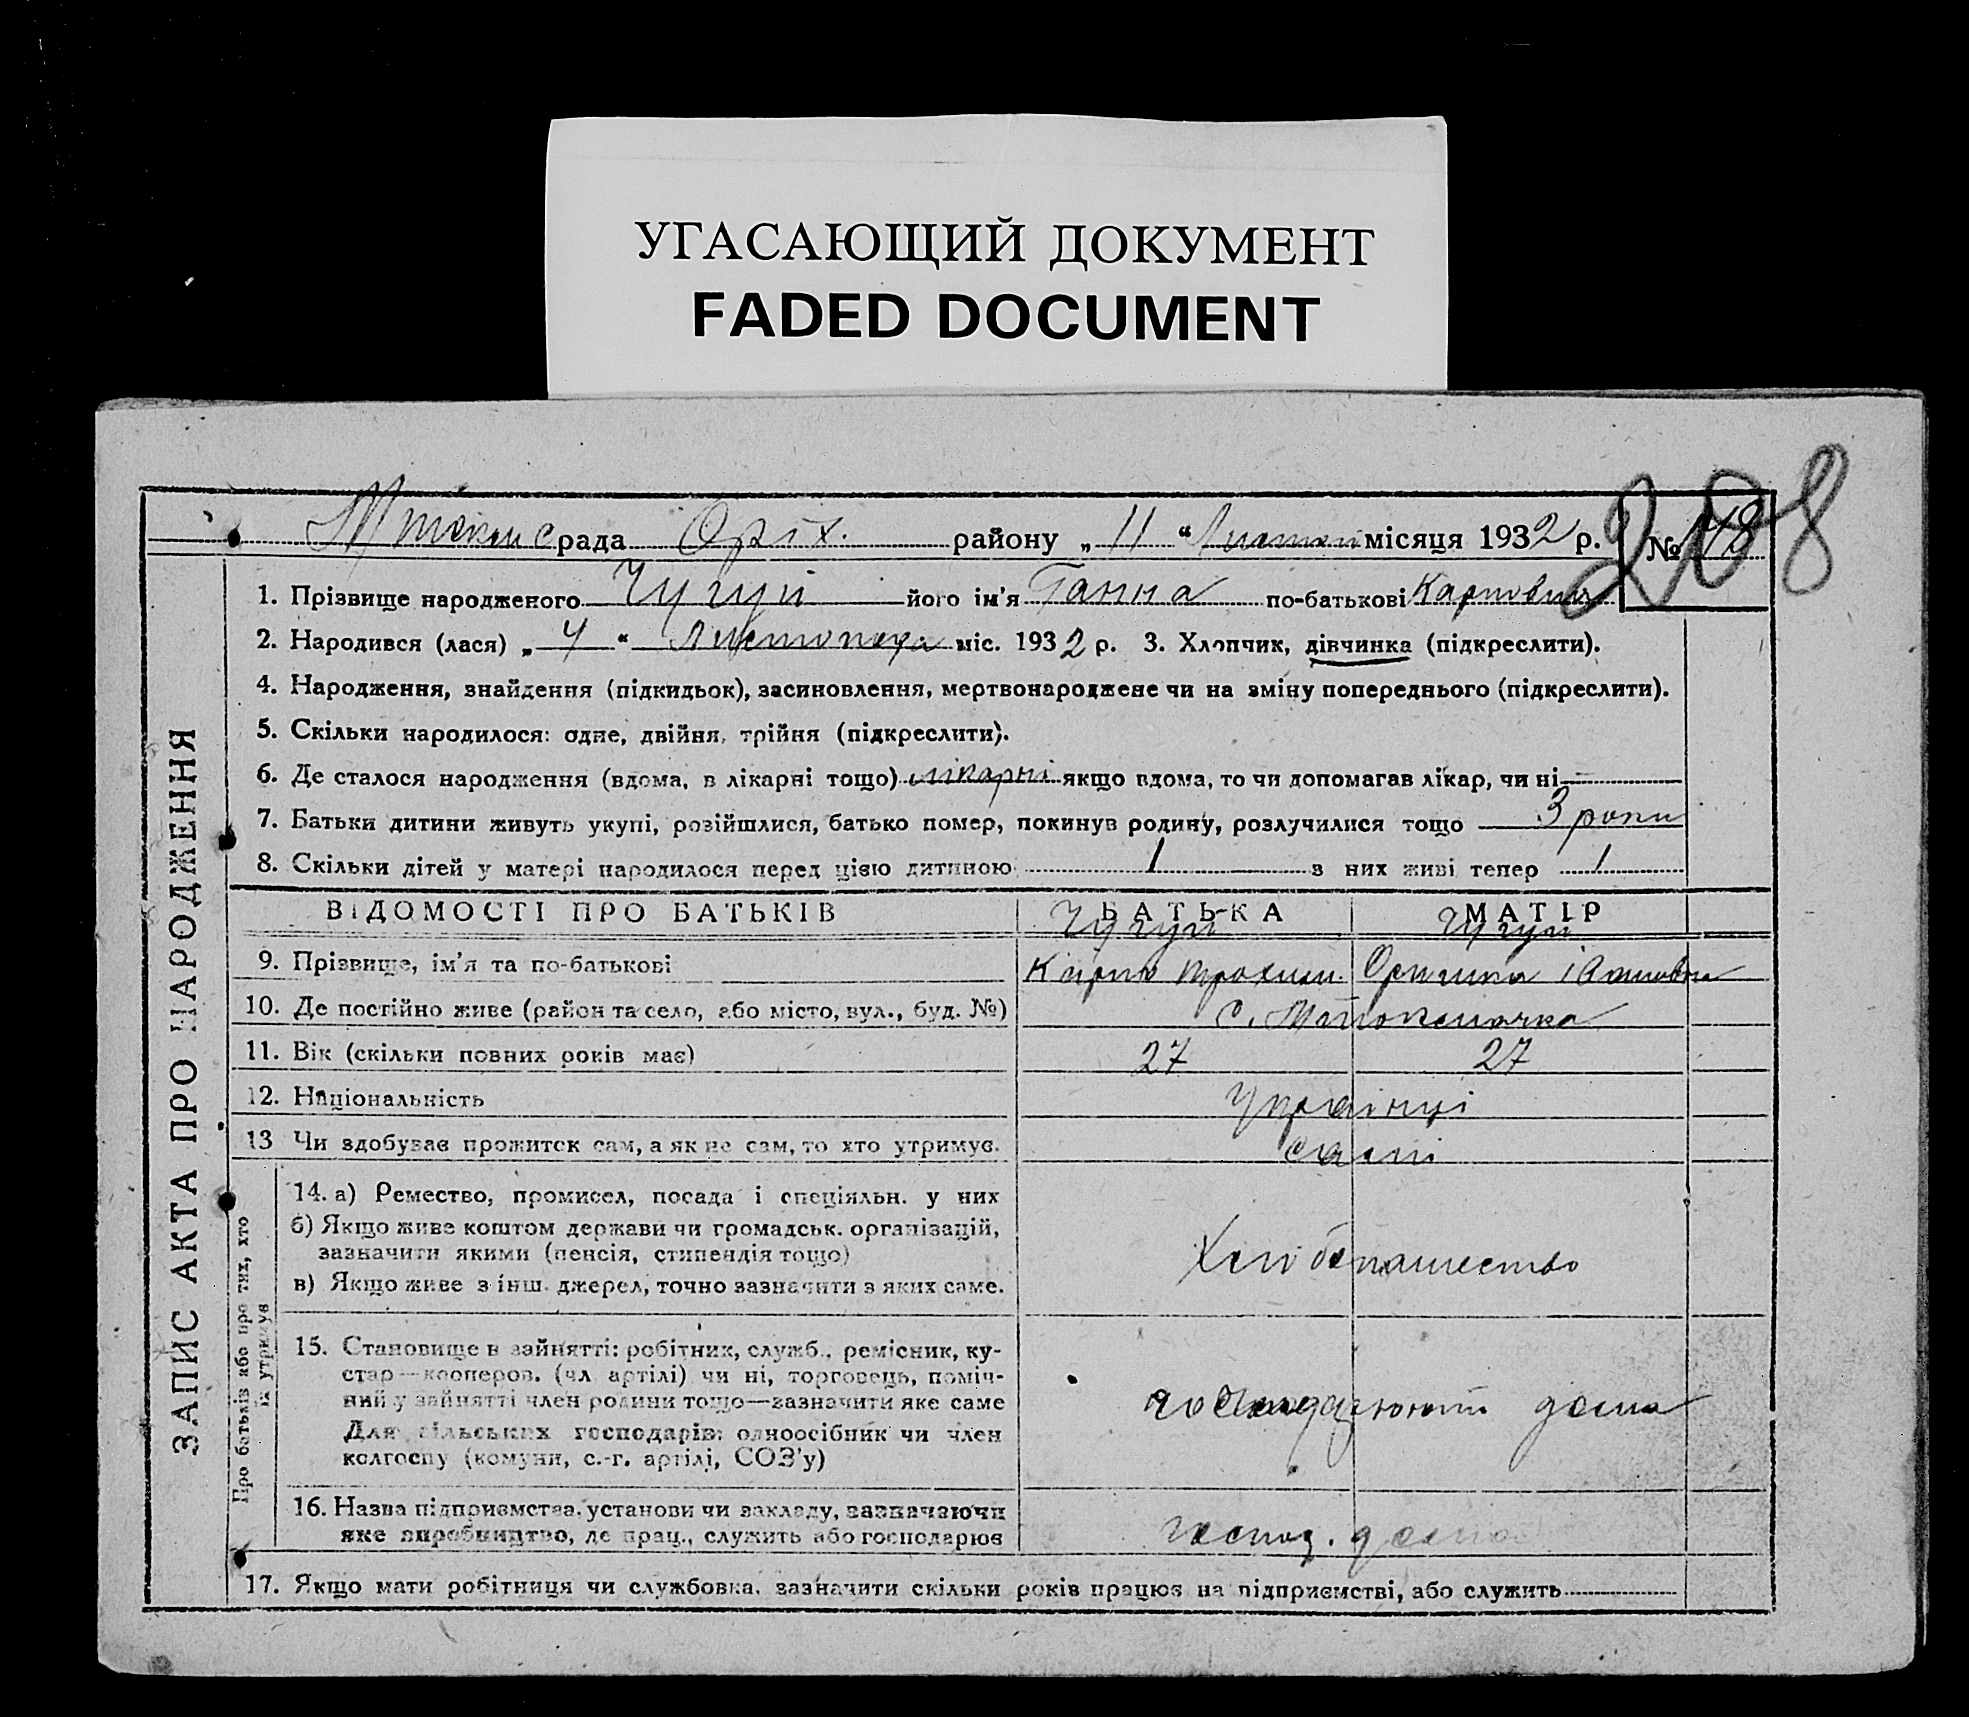 УГАСАЮЩИЙ ДОКУМЕНТ
FADED DOCUMENT
208
рада Оріх. району „ 11 “ місяця 1932 р. № 148
1. Прізвище народженого Чугуй його ім'я Ганна по-батькові Карповна
2. Народився (лася) „ 4 “ Листопада міс. 1932 р. 3. Хлопчик, дівчинка (підкреслити).
4. Народження, знайдення (підкидьок), засиновлення, мертвонароджене чи на зміну попереднього (підкреслити).
5. Скільки народилося: одне, двійня, трійня (підкреслити).
6. Де сталося народження (вдома, в лікарні тощо) лікарні якщо вдома, то чи допомагав лікар, чи ні —
7. Батьки дитини живуть укупі, розійшлися, батько помер, покинув родину, розлучилися тощо 3 роки
8. Скільки дітей у матері народилося перед цією дитиною 1 з них живі тепер 1
ВІДОМОСТІ ПРО БАТЬКІВ БАТЬКА МАТІР
Чугуй Чугуй
9. Прізвище, ім'я та по-батькові Карпо Трохим.
10. Де постійно живе (район та село, або місто, вул., буд. №) с.
11. Вік (скільки повних років має) 27 27
12. Національність Українці
13 Чи здобуває прожиток сам, а як не сам, то хто утримує. самі
14. а) Ремество, промисел, посада і спеціяльн. у них
б) Якщо живе коштом держави чи громадськ. організацій,
зазначити якими (пенсія, стипендія тощо)
в) Якщо живе з інш. джерел, точно зазначити з яких саме.
Хлібопашество
15. Становище в зайнятті: робітник, служб., ремісник, ку-
стар—кооперов. (чл артілі) чи ні, торговець, поміч-
ний у зайнятті член родини тощо—зазначити яке саме
Для сільських господарів: одноосібник чи член
колгоспу (комуни, с.-г. артілі, СОЗ'у)
господарюють дома
16. Назва підприємства, установи чи закладу, зазначаючи
яке виробництво, де прац., служить або господарює
господ. дома
17. Якщо мати робітниця чи службовка, зазначити скільки років працює на підприємстві, або служить
ЗАПИС АКТА ПРО НАРОДЖЕННЯ
Про батьків або про тих, хто
їх утримує